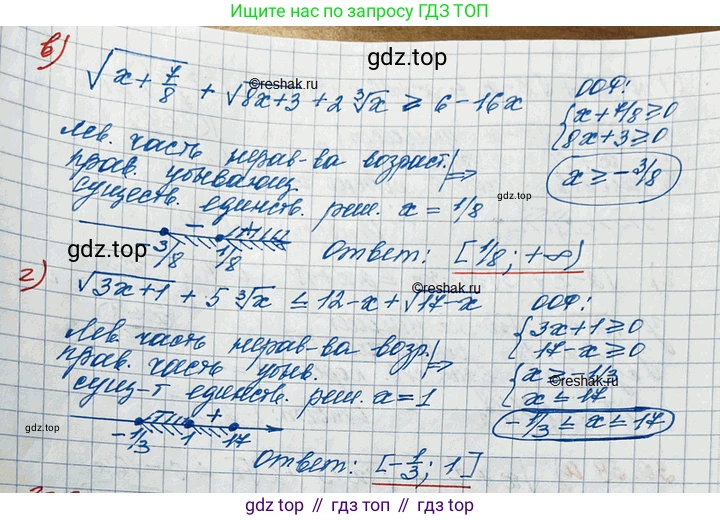 Ищите нас по запросу ГДЗ ТОП
gdz.top
в) √(x + 7/8) + √(8x+3) + 2 ∛x ≥ 6 - 16x
©reshak.ru
ООФ:
{ x + 7/8 ≥ 0
8x + 3 ≥ 0
x ≥ - 3/8
Лев. часть нерав-ва возраст. | ⇒
прав. убывающ
существ. единств. реш. x = 1/8
gdz.top
- +
-3/8 1/8
gdz.top
Ответ: [1/8; +∞)
г) √(3x+1) + 5 ∛x ≤ 12 - x + √(17-x)
©reshak.ru
ООФ:
{ 3x+1 ≥ 0
17-x ≥ 0
{ x ≥ -1/3
x ≤ 17
©reshak.ru
-1/3 ≤ x ≤ 17
Лев. часть нерав-ва возр. | ⇒
прав. часть убыв.
сущ-т единств. реш. x = 1
gdz.top
- +
-1/3 1 17
Ответ: [-1/3; 1]
gdz.top
gdz.top // гдз.топ // gdz.top // гдз.топ